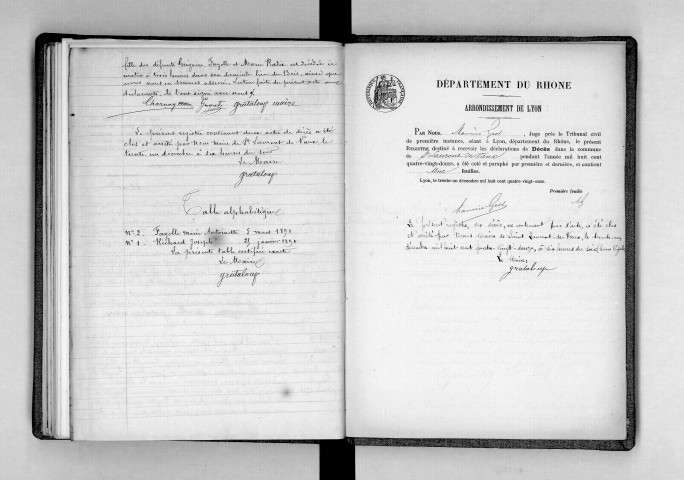 fille des défunts Grégoire Fayolle et Marie Rodie est décédée ce
matin à trois heures dans son domicile lieu du Bois, ainsi que
nous nous en sommes assuré. Lecture faite du présent acte aux
déclarants, ils l'ont signé avec nous
grataloup maire
Le présent registre contenant deux actes de décès a été
clos et arrêté par nous Maire de St Laurent de Vaux le
trente un décembre à six heures du soir
Le Maire
grataloup
Table alphabétique
N° 2. Fayolle marie Antoinette 5 mars 1891
N° 1. Richard Joseph 25 janvier 1891
La présente table certifiée exacte
Le Maire
grataloup
DÉPARTEMENT DU RHONE
ARRONDISSEMENT DE LYON
PAR NOUS, Maurice Gros, Juge près le Tribunal civil
de première instance, séant à Lyon, département du Rhône, le présent
REGISTRE destiné à recevoir les déclarations de Décès dans la commune
de St Laurent de Vaux pendant l'année mil huit cent
quatre-vingt-douze, a été coté et paraphé par première et dernière, et contient
feuilles.
Lyon, le trente-un décembre mil huit cent quatre-vingt-onze.
Première feuille
Maurice Gros
Le présent registre, des décès, ne contenant pas d'acte, a été clos
et arrêté par Nous Maire de Saint Laurent-de-Vaux, le trente un
décembre mil huit cent quatre-vingt-douze, à six heures du soir
Le Maire,
grataloup